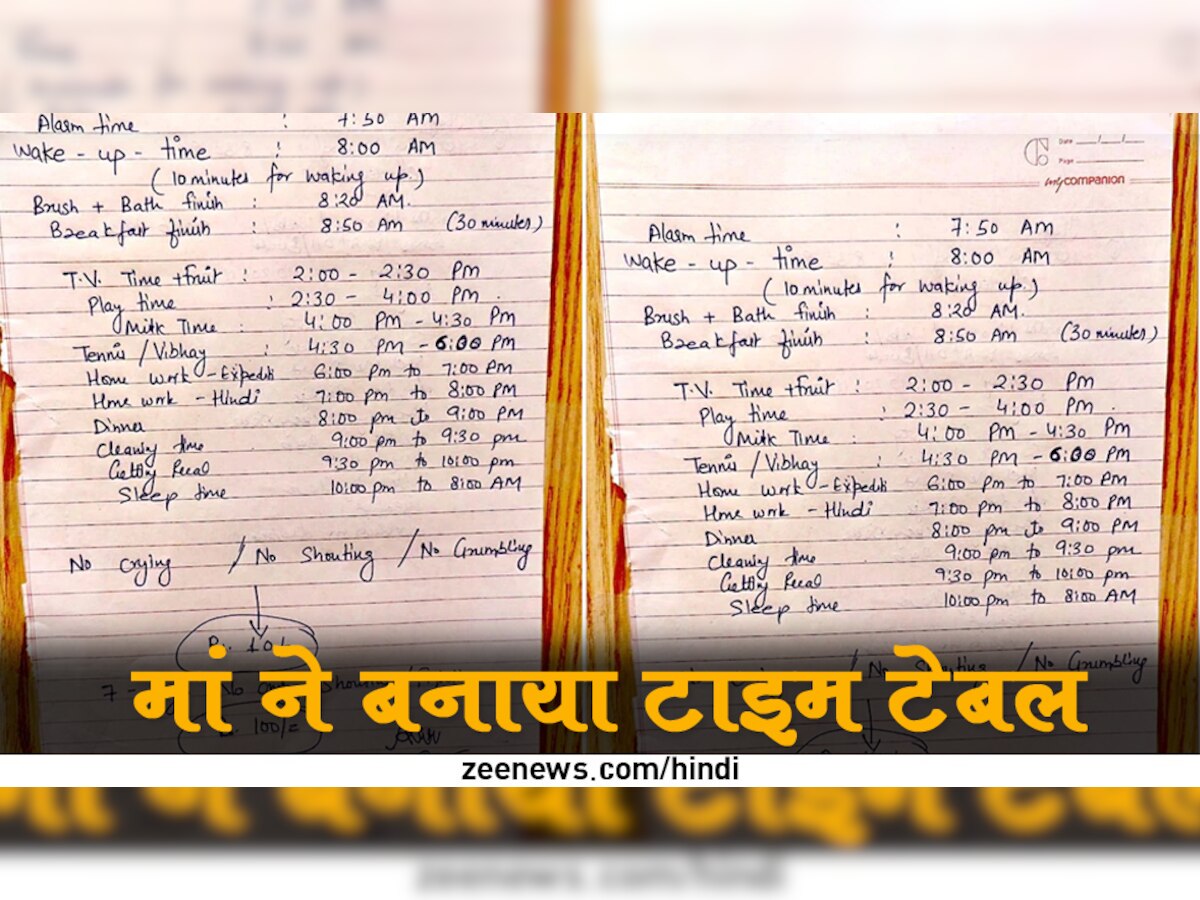 Alarm time : 7:50 AM
Wake - up - time : 8:00 AM
(10 minutes for waking up.)
Brush + Bath finish : 8:20 AM.
Breakfast finish : 8:50 AM (30 minutes)
T.V. Time + fruit : 2:00 - 2:30 PM
Play time : 2:30 - 4:00 PM.
Milk Time : 4:00 PM - 4:30 PM
Tennis / Vibhay : 4:30 PM - 6:00 PM
Home work - Expediti 6:00 Pm to 7:00 PM
Hme work - Hindi 7:00 pm to 8:00 PM
Dinner 8:00 pm to 9:00 PM
Cleaning time 9:00 pm to 9:30 pm
9:30 pm to 10:00 pm
Sleep time 10:00 pm to 8:00 AM
No Crying / No Shouting / No Grumbling
Rs. 10/-
100/=
Date
Page
mycompanion
Alarm time : 7:50 AM
Wake - up - time : 8:00 AM
(10 minutes for waking up.)
Brush + Bath finish : 8:20 AM.
Breakfast finish : 8:50 AM (30 minutes)
T.V. Time + fruit : 2:00 - 2:30 PM
Play time : 2:30 - 4:00 PM.
Milk Time : 4:00 PM - 4:30 PM
Tennis / Vibhay : 4:30 PM - 6:00 PM
Home work - Expediti 6:00 Pm to 7:00 PM
Hme work - Hindi 7:00 pm to 8:00 PM
Dinner 8:00 pm to 9:00 PM
Cleaning time 9:00 pm to 9:30 pm
9:30 pm to 10:00 pm
Sleep time 10:00 pm to 8:00 AM
/ No Shouting / No Grumbling
मां ने बनाया टाइम टेबल
zeenews.com/hindi